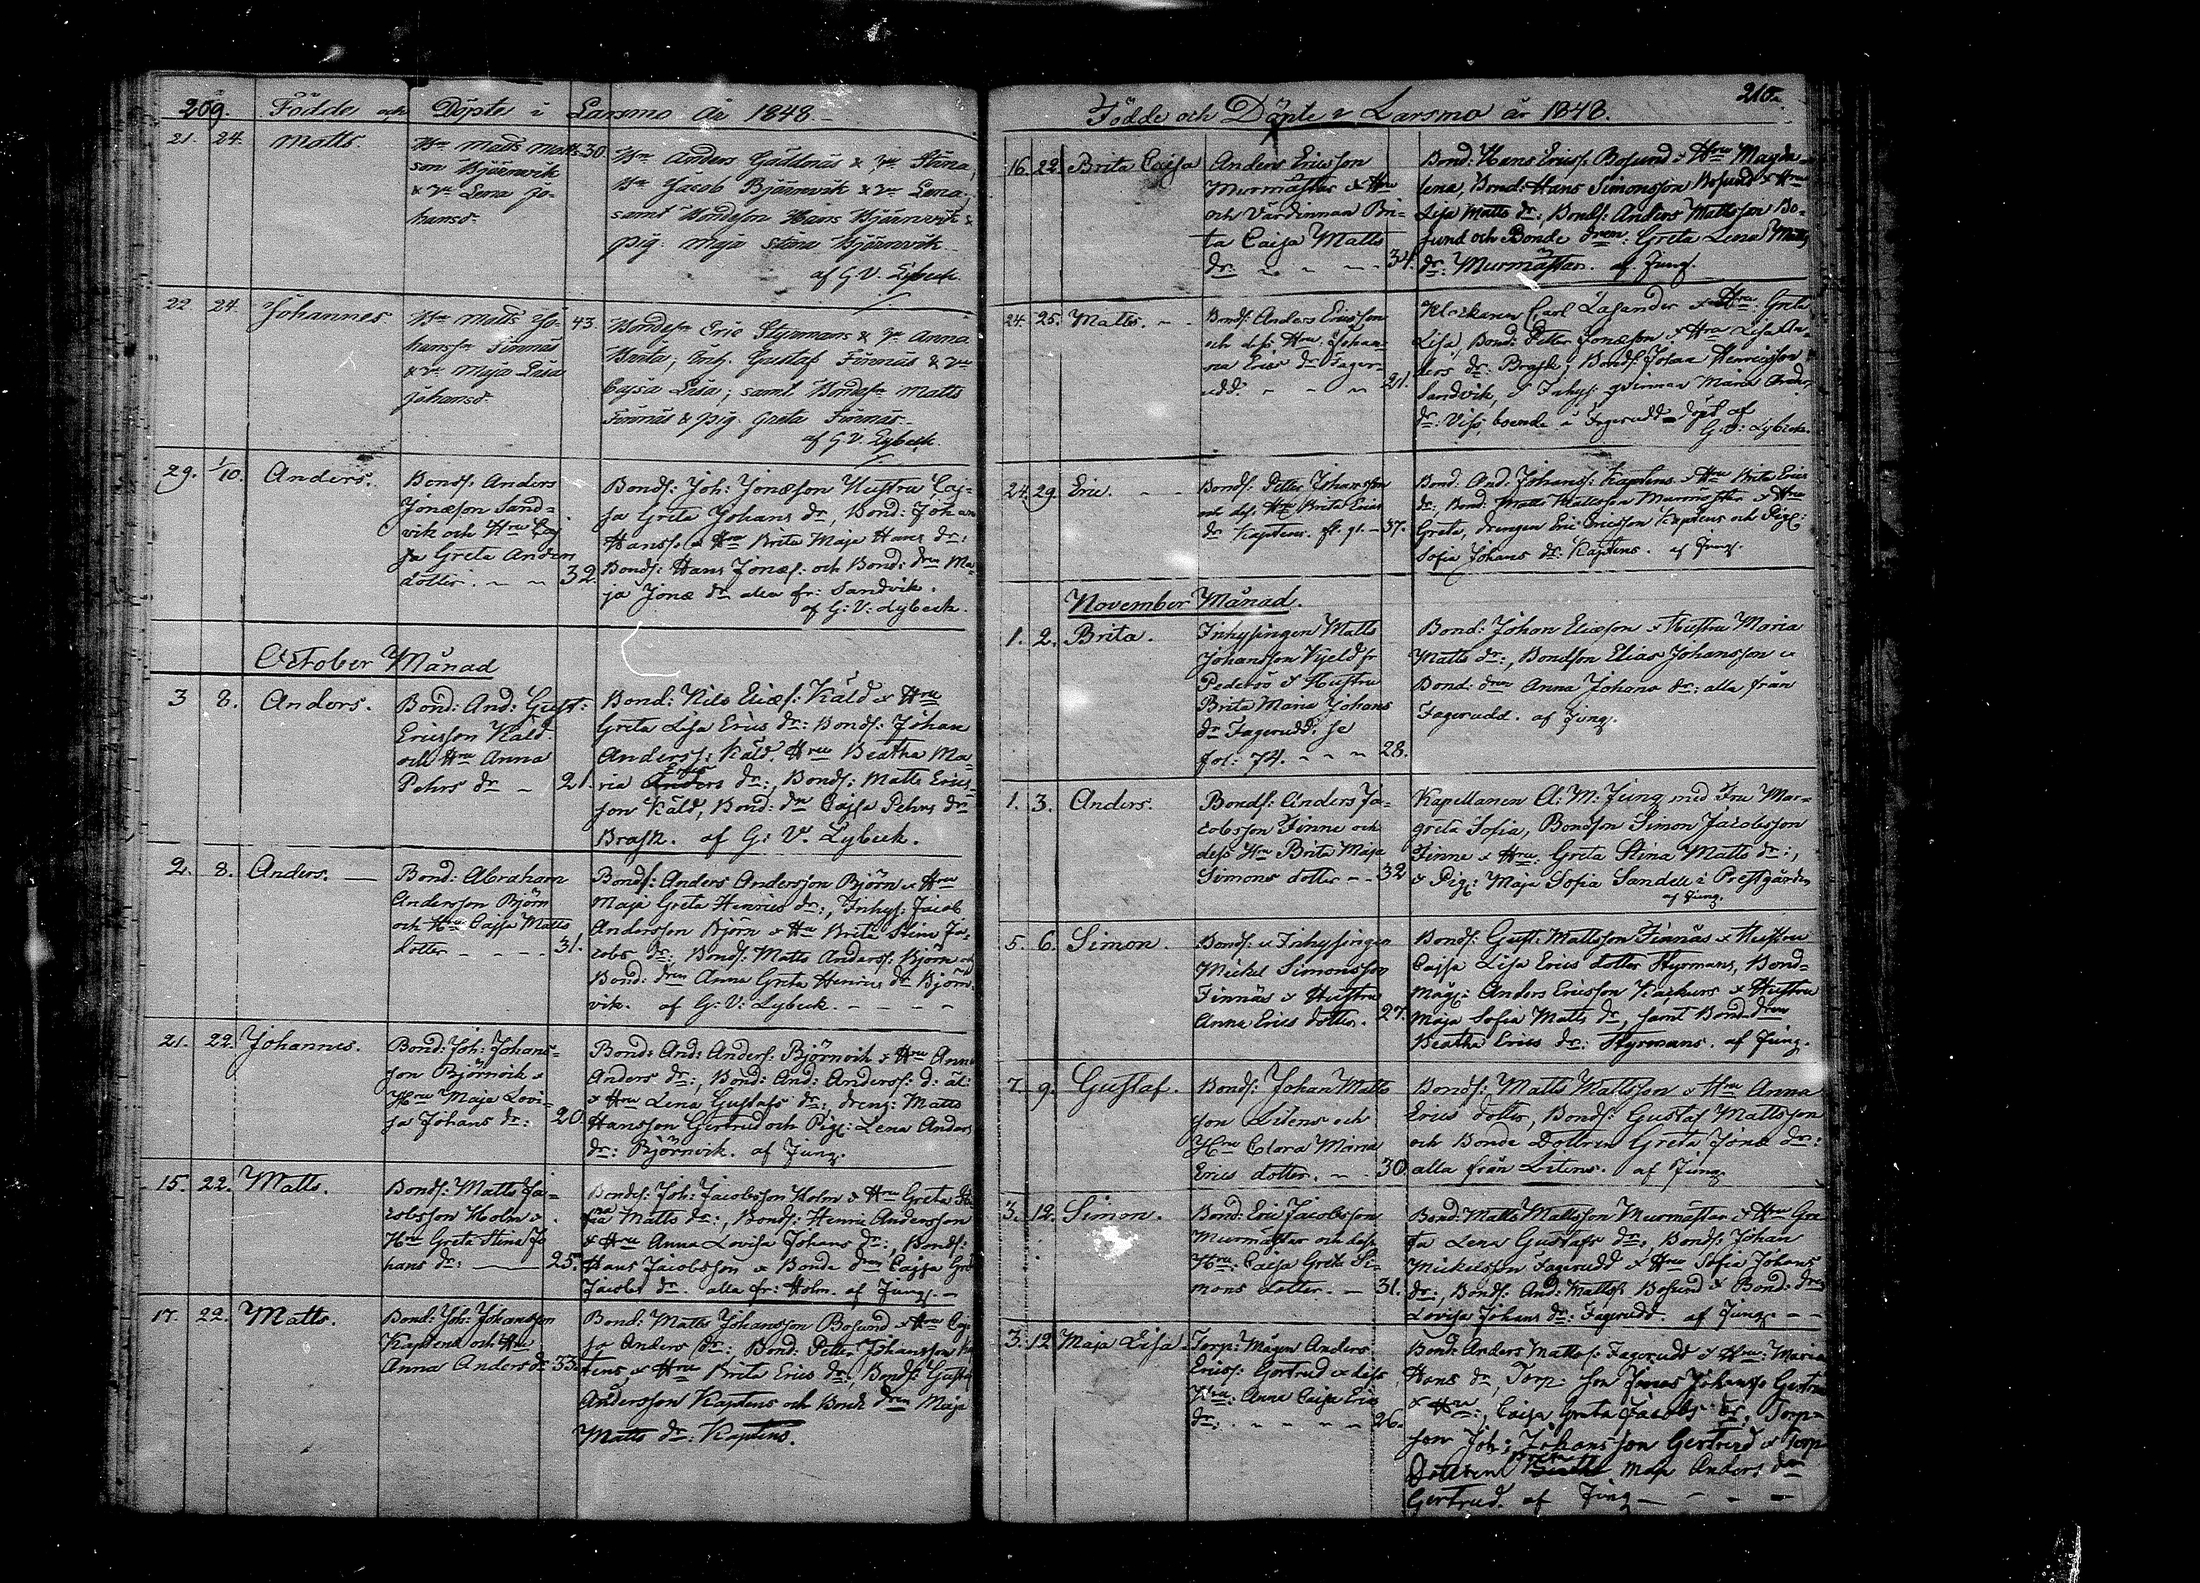 209. Födde och Döpte i Larsmo År 1848.
21. 24. Matts.
Bn Matts Matts-
son Björnvik
& vn Lena Jo-
hansdr
30.
Bn Anders Gäddnäs & vn Stina,
Bn Jacob Björnvik & vn Lena,
samt Bondeson Hans Björnvik &
pig. Maja Stina Björnvik
af G. V. Lybeck
22 24. Johannes
Bn Matts Jo-
hanssn Finnäs
& vn Maja Lisa
Johansdr
43.
Bondesn Eric Styrmans & vn Anna
Brita; Gustaf Finnäs & vn
Cajsa Lisa; samt Bondesn Matts
Finnäs & pig. Greta Finnäs.
af G. V. Lybeck.
29. 1/10. Anders.
Bonds. Anders
Jonæson Sand-
vik och Hru Caj-
sa Greta Anders
dotter. 32.
Bonds: Joh: Jonæson Hustru Caj-
sa Greta Johans dr, Bond: Johan
Hanss: & Hru Brita Maja Hans dr:
Bonds: Hans Jonæs: och Bond: drn Ma-
ja Jonæ dr alla fr: Sandvik.
af G: V: Lybeck.
October Månad
3 8. Anders.
Bond: And: Gust:
Ericsson Käld
och Hru Anna
Pehrs dr 21.
Bond: Nils Eliæs: Käld & Hru
Greta Lisa Erics dr: Bonds: Johan
Anderss: Käld, Hru Beatha Ma-
ria Anders Erics dr:, Bonds: Matts Erics-
son Käld, Bond: dr Cajsa Pehrs dr
Brask. af G: V. Lybeck.
2. 8. Anders.
Bond: Abraham
Andersson Björn
och Hru Cajsa Matts
dotter 31.
Bonds: Anders Andersson Björn & Hru
Maja Greta Henrics dr:, Inhys: Jacob
Andersson Björn & Hru Brita Stina Ja-
cobs dr:, Bonds: Matts Anderss: Björn och
Bond: drn Anna Greta Henrics dr Björn-
vik. af G: V: Lybeck.
21. 22. Johannes.
Bond: Joh: Johans-
son Björnvik &
Hru Maja Lovi-
sa Johans dr: 20.
Bond: And: Anders: Björnvik & Hru Anna
Anders dr:, Bond: And: Anderss: d: äl:
& Hru Lena Gustafs dr:, dreng: Matts
Hansson Gertrud och Pig: Lena Anders
dr: Björnvik. af Jung.
15. 22. Matts.
Bonds: Matts Ja-
cobsson Holm &
Hru Greta Stina Jo
hans dr: 25.
Bonds: Joh: Jacobsson Holm & Hru Greta
Matts dr:, Bonds: Henric Andersson
& Hru Anna Lovisa Johans dr:, Bonds:
Hans Jacobsson & Bonde drn Cajsa Gre
Jacobs dr. alla fr: Holm. af Jung.
17. 22. Matts.
Bond: Joh: Johansson
Kaptens och Hru
Anna Anders dr 33.
Bond: Matts Johansson Bosund & Hru Caj-
sa Anders dr: Bond: Petter Johansson Kap
tens, & Hru Brita Erics dr:, Bonds: Gustaf
Andersson Kaptens och Bond drn Maja
Matts dr: Kaptens.
210.
Födde och Döpte i Larsmo år 1848.
16. 22. Brita Cajsa
Anders Ericsson
Murmästar & Hru
och Värdinnan Bri-
ta Caisa Matts
dr: 34.
Bond: Hans Ericss: Bosund & Hru Magda-
lena, Bond: Hans Simonsson Bosund & Hru
Lisa Matts dr:, Bonds: Anders Mattsson Bo-
sund och Bonde drn: Greta Lena Matts
dr: Murmästar. af Jung.
24. 25. Matts.
Bonds: Anders Ericsson
och dess Hru Johan-
na Erics dr Fager-
udd. 21.
Klockaren Carl Lasander & Hru Greta
Lisa, Bond: Petter Jonæson & Hru Lisa An-
ders dr: Brask, Bonds: Johan Henricsson
Sandvik, & Inhys: qvinnan Maria Anders
dr: Viss, boende i Fagerudd döpt af
G: V: Lybeck.
24. 29. Eric.
Bonds: Petter Johansson
och dess Hru Brita Erics
dr Kaptens. 37.
Bond. And. Johanss: Kaptens & Hru Brita Erics
dr:, Bond: Matts Mattsson Murmästar & Hru
Greta, drengen Eric Ericsson Kaptens och Pig:
Sofia Johans dr: Kaptens. af Jung.
November Månad.
1. 2. Brita.
Inhysingen Matts
Johansson Kjeld fr
Pedersö & Hustru
Brita Maria Johans
dr Fagerudd. se
fol: 74. 28.
Bond: Johan Eliæson & Hustru Maria
Matts dr:, Bondson Elias Johansson &
Bond: drn Anna Johans dr: alla från
Fagerudd. af Jung.
1. 3. Anders.
Bonds: Anders Ja-
cobsson Finne och
dess Hru Brita Maja
Simons dotter 32
Kapellanen A: M: Jung med Fru Mar-
greta Sofia, Bondson Simon Jacobsson
Finne & Hru: Greta Stina Matts dr:,
& Pig: Maja Sofia Sandell i Prestgården
af Jung.
5. 6. Simon.
Bonds: & Inhysingen
Mickel Simonsson
Finnäs & Hustru
Anna Erics dotter. 27.
Bonds: Gust: Mattsson Finnäs & Hustru
Cajsa Lisa Erics dotter Styrmans, Bond-
måg: Anders Ericsson Kackurs & Hustru
Maja Sofia Matts dr, samt Bond drn
Beatha Erics dr: Styrmans. af Jung.
7. 9. Gustaf.
Bonds: Johan Matts
son Litens och
Hru Clara Maria
Erics dotter. 30.
Bonds: Matts Mattsson & Hru Anna
Erics dotter, Bonds: Gustaf Mattsson
och Bonde Dottren Greta Jonæ dr:
alla från Litens. af Jung.
3. 12. Simon.
Bond: Eric Jacobsson
Murmästar och dess
Hru: Caisa Greta Si-
mons dotter. 31.
Bond: Matts Mattsson Murmästar & Hru Gre
ta Lena Gustafs dr:, Bonds: Johan
Mickelsson Fagerudd & Hru Sofia Johans
dr:, Bonds: And: Mattss: Bosund & Bond: drn
Lovisa Johans dr: Fagerudd. af Jung.
3. 12 Maja Lisa.
Torp: Mågen Anders
Ericss: Gertrud & dess
Hru: Anna Caisa Erics
dr: 26.
Bond: Anders Mattss: Fagerudd & Hru: Maria
Hans dr, Torp: son Jonas Johanss: Gertrud
& Hru:, Caisa Greta Jacobs dr, Torp-
son Joh: Johansson Gertrud & Torp
Dottren Brita Maja Anders dr
Gertrud. af Jung